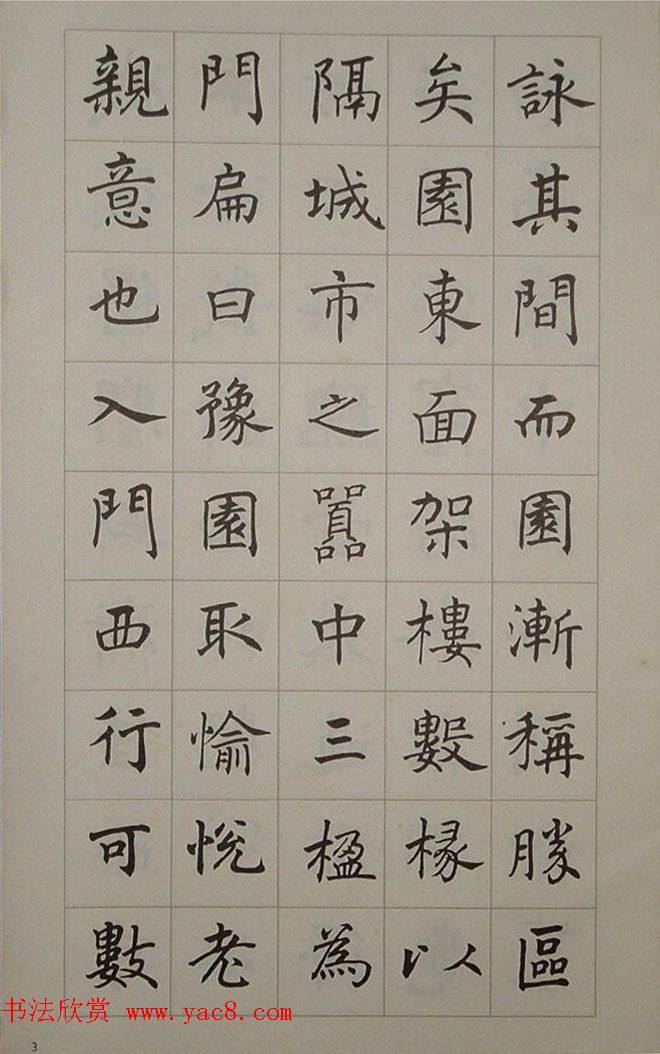 詠其間而園漸稱勝區
矣園東面架樓數椽以
隔城市之囂中三楹為
門扁曰豫園取愉悅老
親意也入門西行可數
书法欣赏 www.yac8.com
3